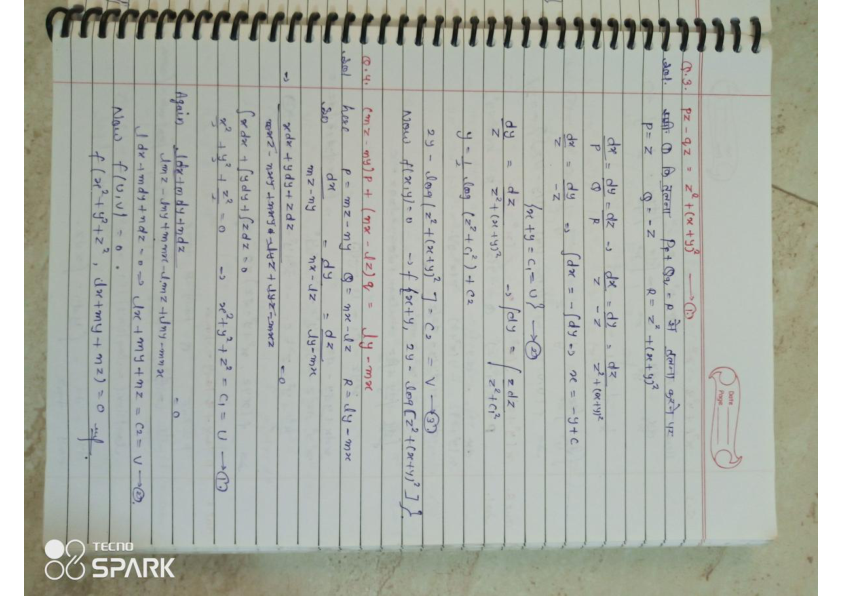 Date
Page
Q.3. pz - qz = z² + (x+y)² → ①
समी० ① कि तुलना Pp + Qq = R से तुलना करने पर
P = z Q = -z R = z² + (x+y)²
dx/P = dy/Q = dz/R ⇒ dx/z = dy/-z = dz/z²+(x+y)²
dx/z = dy/-z ⇒ ∫dx = -∫dy ⇒ x = -y + c
{x + y = c₁ = U} → ②
dy/z = dz/z²+(x+y)² ⇒ ∫dy = ∫z dz/z²+c₁²
y = 1/2 log (z² + c₁²) + c₂
2y - log [z² + (x+y)²] = c₂ = V → ③
Now f(x,y) = 0 ⇒ f {x+y, 2y - log [z² + (x+y)²]}.
Q.4. (mz - my)p + (nx - lz)q = ly - mx
here P = mz - ny Q = nx - lz R = ly - mx
dx/mz-ny = dy/nx-lz = dz/ly-mx
⇒ xdx + ydy + zdz = 0
∫xdx + ∫ydy + ∫zdz = 0
x²/2 + y²/2 + z²/2 = 0 ⇒ x² + y² + z² = c₁ = U → ①
Again ldx + mdy + ndz = 0
ldx + mdy + ndz = 0 ⇒ lx + my + nz = c₂ = V → ②
Now f(U,V) = 0.
f(x² + y² + z², lx + my + nz) = 0
TECNO
SPARK